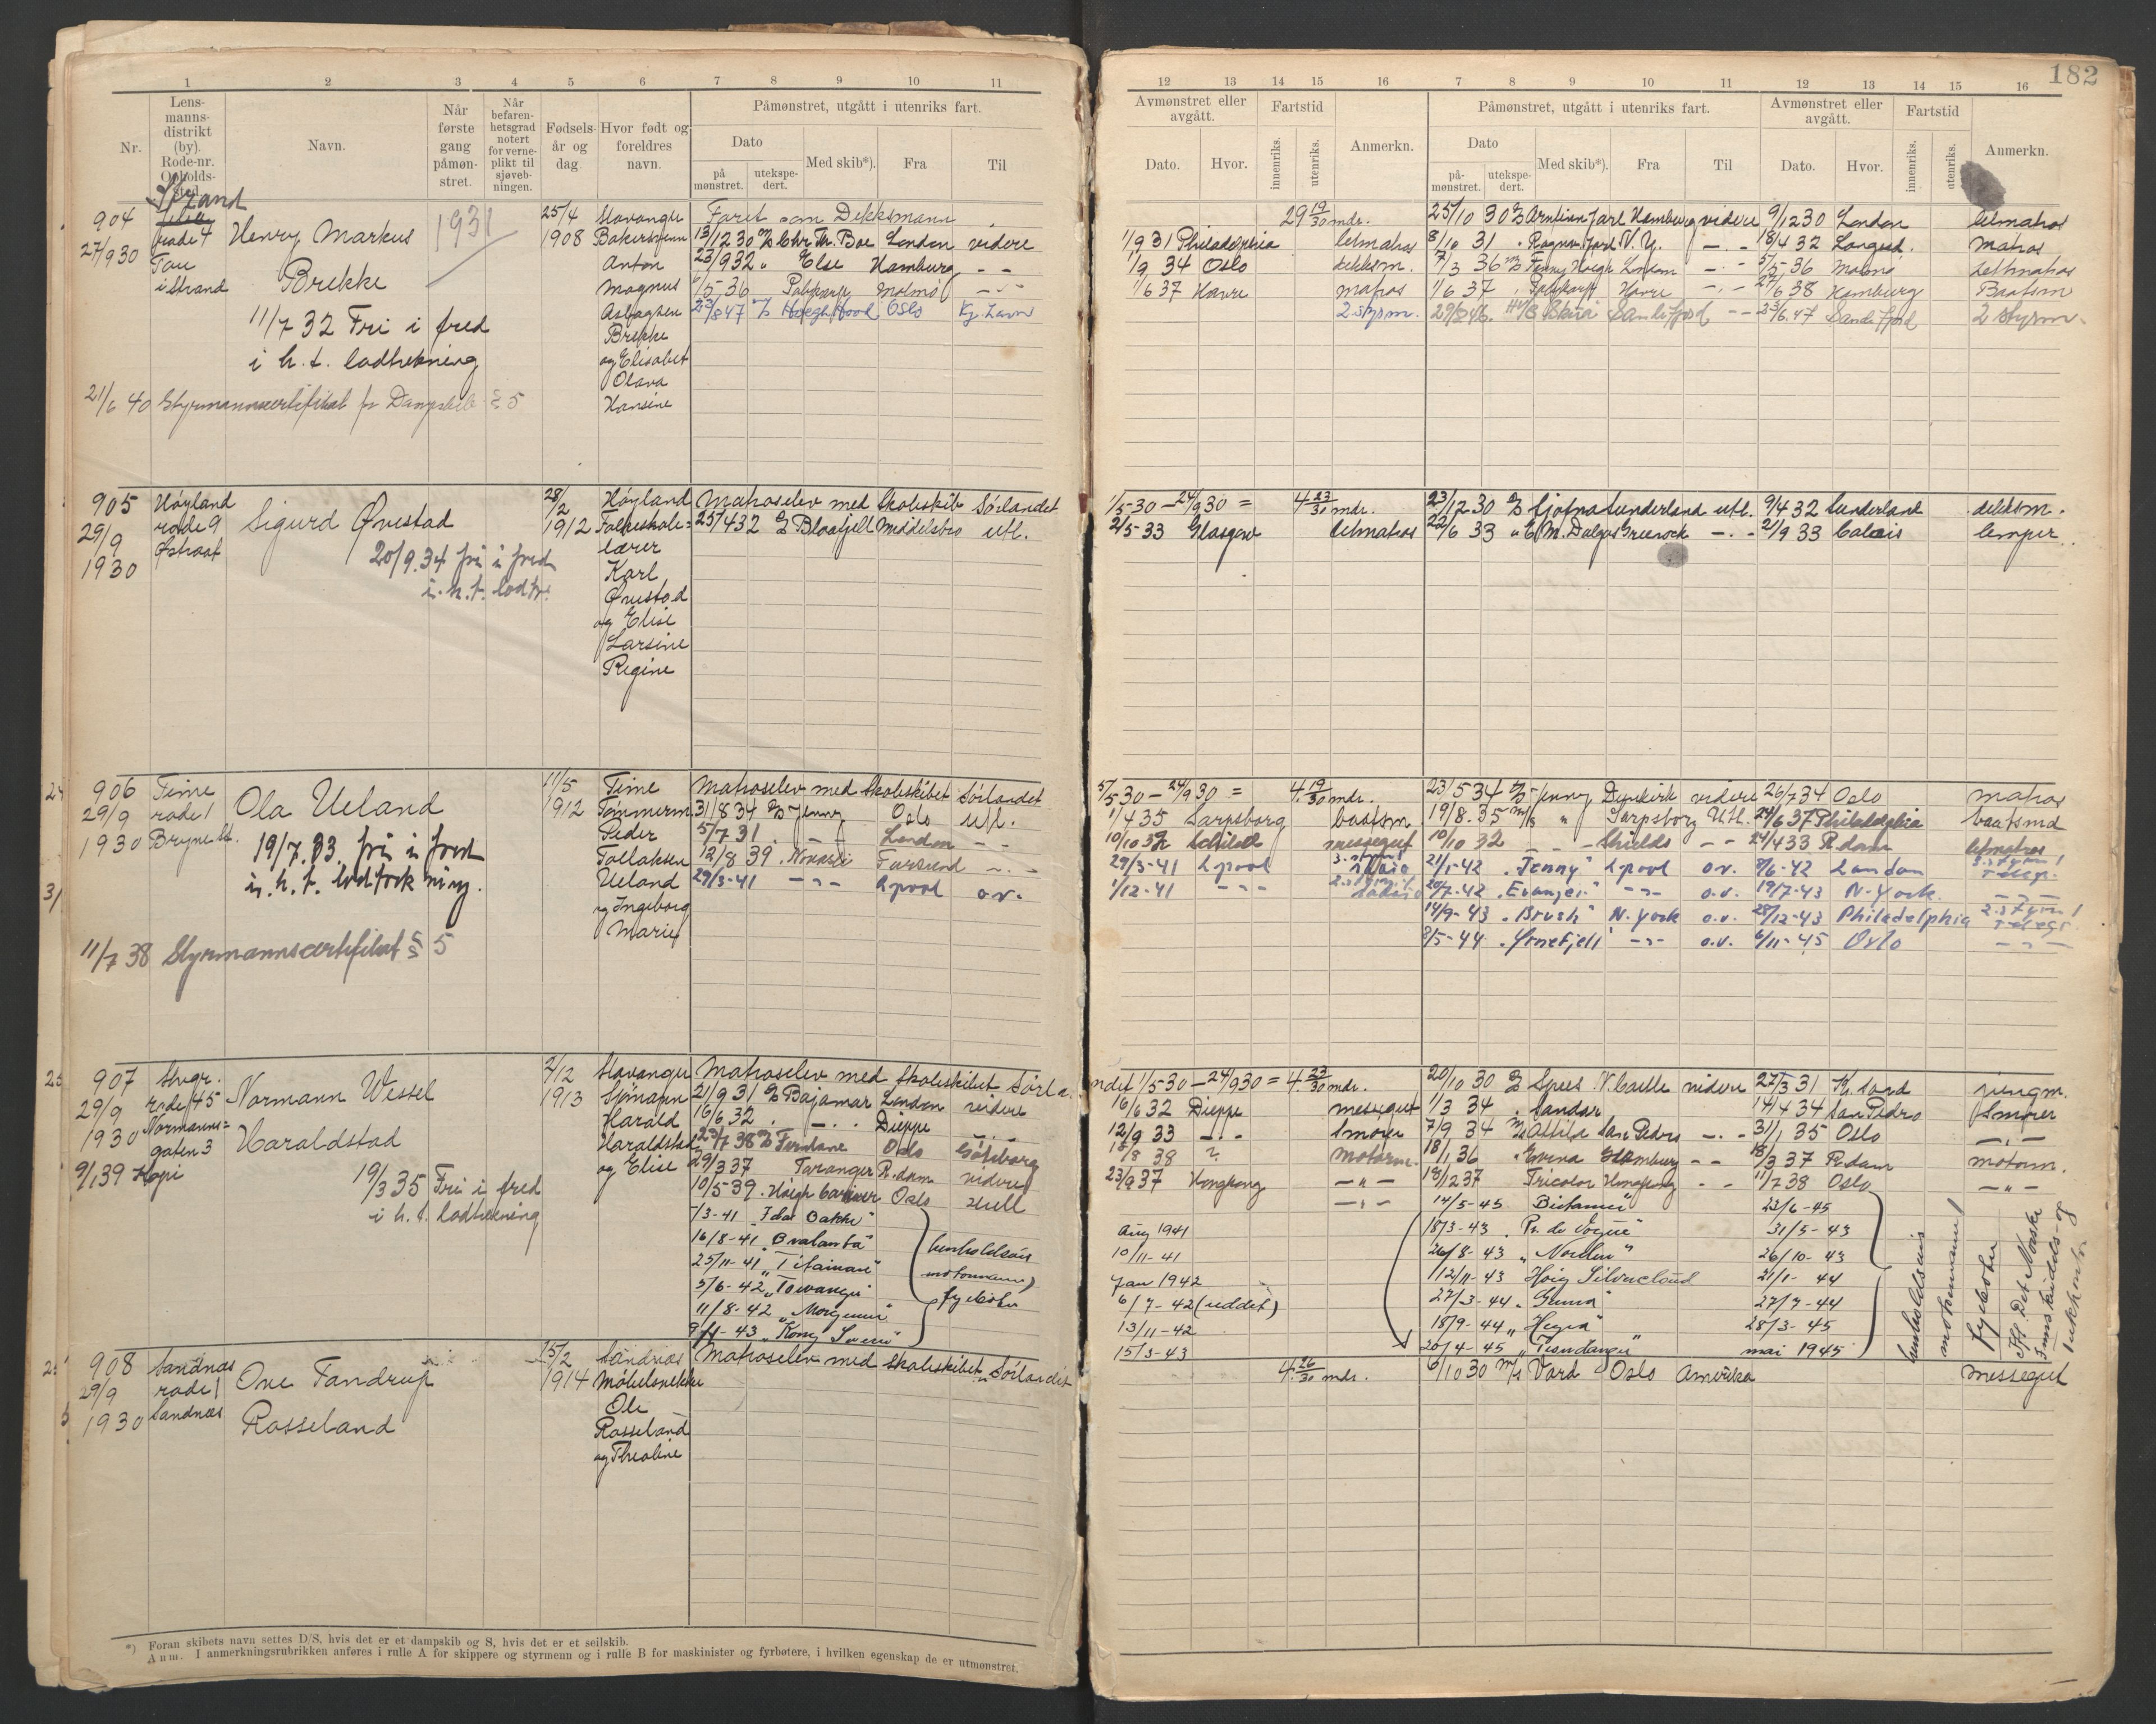 182
1 2 3 4 5 6 7 8 9 10 11
12 13 14 15 16 7 8 9 10 11 12 13 14 15 16
Nr.
Lens-
manns-
distrikt
(by).
Rode-nr.
Opholds-
sted.
Navn.
Når
første
gang
påmøn-
stret.
Når
befaren-
hetsgrad
notert
for verne-
plikt til
sjøveb-
ningen.
Fødsels-
år og
dag.
Hvor født og
foreldres
navn.
Påmønstret, utgått i utenriks fart.
Dato
på
mønstret.
utekspe-
dert.
Med skib*).
Fra
Til
Avmønstret eller
avgått.
Dato.
Hvor.
Fartstid
innenriks.
utenriks.
Anmerkn.
Påmønstret, utgått i utenriks fart.
Dato
på-
mønstret.
utekspe-
dert.
Med skib*).
Fra
Til
Avmønstret eller
avgått.
Dato.
Hvor.
Fartstid
innenriks.
utenriks.
Anmerkn.
904
27/9 30
Strand
rode 4
Tau
i Strand
Henry Markus
Brekke
1931
11/7 32 Fri i fred
i h. t. lodtrekning
21/6 40 Styrmannscertifikat for Dampskib § 5
25/4
1908
Stavanger
Bakersvenn
Anton
Magnus
Aslagsen
Brekke
og Elisabet
Olava
Hansine
Faret som Dekksmann
13/12 30 Chr. Th. Boe London videre
23/9 32 " Else Hamburg - -
1/5 36 Polykarp Malmø - " -
23/8 47 Høegh Hood Oslo Kj. havn
29 19/30 mdr.
1/9 31 Philadelphia letmatros
1/9 34 Oslo dekksm.
1/6 37 Havre matros
2 styrm.
25/10 30 Arntinn Jarl Hamburg videre 9/12 30 London letmatros
8/10 31 " Ragnv. Jarl N. Y. - . - 18/4 32 matros
7/3 36 Fenny Høegh - . - 5/5 36 Malmø Lettmatros
1/6 37 " Polykarp Havre - " - 27/6 38 Hamburg Baatsm
Sandefjord - - 23/6.47 Sandefjord 2 styrm.
905
29/9
1930
Høyland
rode 9
Østraat
Sigurd Øvestad
20/9.34 fri i fred
i. h. t. lodtr.
28/2
1912
Høyland
Folkeskole=
lærer
Karl
Øvestad
og Elise
Larsine
Regine
Matroselev med Skoleskib Sörlandet
25/4 32 Blaafjell Middelsbro utl.
1/5-30 - 24/9 30 = 4 23/30 mdr.
2/5 33 Glasgow letmatros
23/12.30 Sunderland utl. 9/4 32 Sunderland dekksm.
22/6 33 " E. M. Dalgas Greenock - . - 21/9 33 Calais lemper
906
29/9
1930
Time
rode 1
Bryne st.
Ola Ueland
19/7.33. fri i fred
i. h. t. lodtrekning.
11/7 38 Styrmannscertifikat § 5
11/5
1912
Time
Tømmerm
Peder
Tollaksen
Ueland
og Ingeborg
Marie
Matroselev med Skoleskibet Sörlandet
31/8 34 Jenny Oslo utl.
5/7 31 . - London - -
12/8 39 . Farsund - . -
29/3-41 - " - Lpool o.v.
5/5 30 - 24/9 30 = 4. 19/30 mdr.
1/4 35 Sarpsborg baatsm
10/10 32 messegut
29/3-41 Lpool
1/12-41 - " -
23/5 34 Jenny Dunkirk videre 26/7 34 Oslo matros
19/8.35 " Sarpsborg Utl. 24/6 37 Philadelphia baatsmd
10/10 32 - - - Shields - - 24/4 33 R.dam letmatros
21/1-42 " Jenny" Lpool o.v. 7/6-42 London
20/7-42 - " - o.v. 19/7-43 N. York. - " -
14/9-43 . "Brush" N. York o.v. 28/12-43 Philadelphia
8/5-44 - " - o.v. 6/11-45 Oslo - " -
907
29/9
1930
9/1 39 Kopi
Stvgr.
rode 45
Normanns=
gaten 3
Normann Wessel
Haraldstad
19/3 35 Fri i fred
i h. t. lodtrekning
2/12
1913
Stavanger
Sjömann
Harald
Haraldstad
og Elise
Matroselev med skoleskibet Sörla
21/9 31 Bajamar London videre
16/6 32 . - . . Dieppe - . -
23/7 38 Oslo Göteborg
29/3 37 Taranger R.dam videre
10/5-39 . Høegh Carrier Oslo Hull
1/3-41 "Ida Bakke"
16/8-41 "Bralanta"
25/11-41 "Titanian"
5/6-42 "
11/8-42 "
9/1-43 "Kong Sverre"
henholdsvis
motormann,
fyrbøter
ndet 1/5 30 - 24/9 30 = 4. 23/30 mdr.
16/6 32 Dieppe messegut
12/9 33 - " - Smører
15/8 38 ? motorm.
23/9 37 Hongkong - " -
- " -
Aug 1941
10/11-41
Jan 1942
6/7-42 (uddet)
13/11-42
15/3-43
20/10 30 Spes N. Castle videre 27/3 31 jungm.
1/3 34 . Sandar 14/4 34 San Pedro Smører
7/9 34 Attila San Pedro - . - 31/1 35 Oslo - " -
18/1 36 Hamburg - - 18/3 37 R.dam motorm.
18/12 37 Tricolor Hongkong - - 11/7 38 Oslo - " -
14/5-45 23/6-45
18/3-43 . P. de Vogüe" 31/5-43
26/8-43 " Norden" 26/10-43
12/11-43 Høig Silvercloud 21/1-44
27/3-44 " 27/7-44
18/9-44 " Hegra" 28/3-45
20/4-45 " mai 1945
henholdsvis
motormann/
fyrbøter
908
29/9
1930
Sandnæs
rode 1
Sandnæs
Ove Tandrup
Rosseland
25/2
1914
Sandnæs
Møbelsnekker
Ole
Rosseland
og Theoline
Matroselev med skoleskibet Sörlandet
4. 26/30 mdr.
6/10 30 Vard Oslo Amerika messegut
*) Foran skibets navn settes D/S, hvis det er et dampskib og S, hvis det er et seilskib.
Anm. I anmerkningsrubrikken anføres i rulle A for skippere og styrmenn og i rulle B for maskinister og fyrbøtere, i hvilken egenskap de er utmønstret.